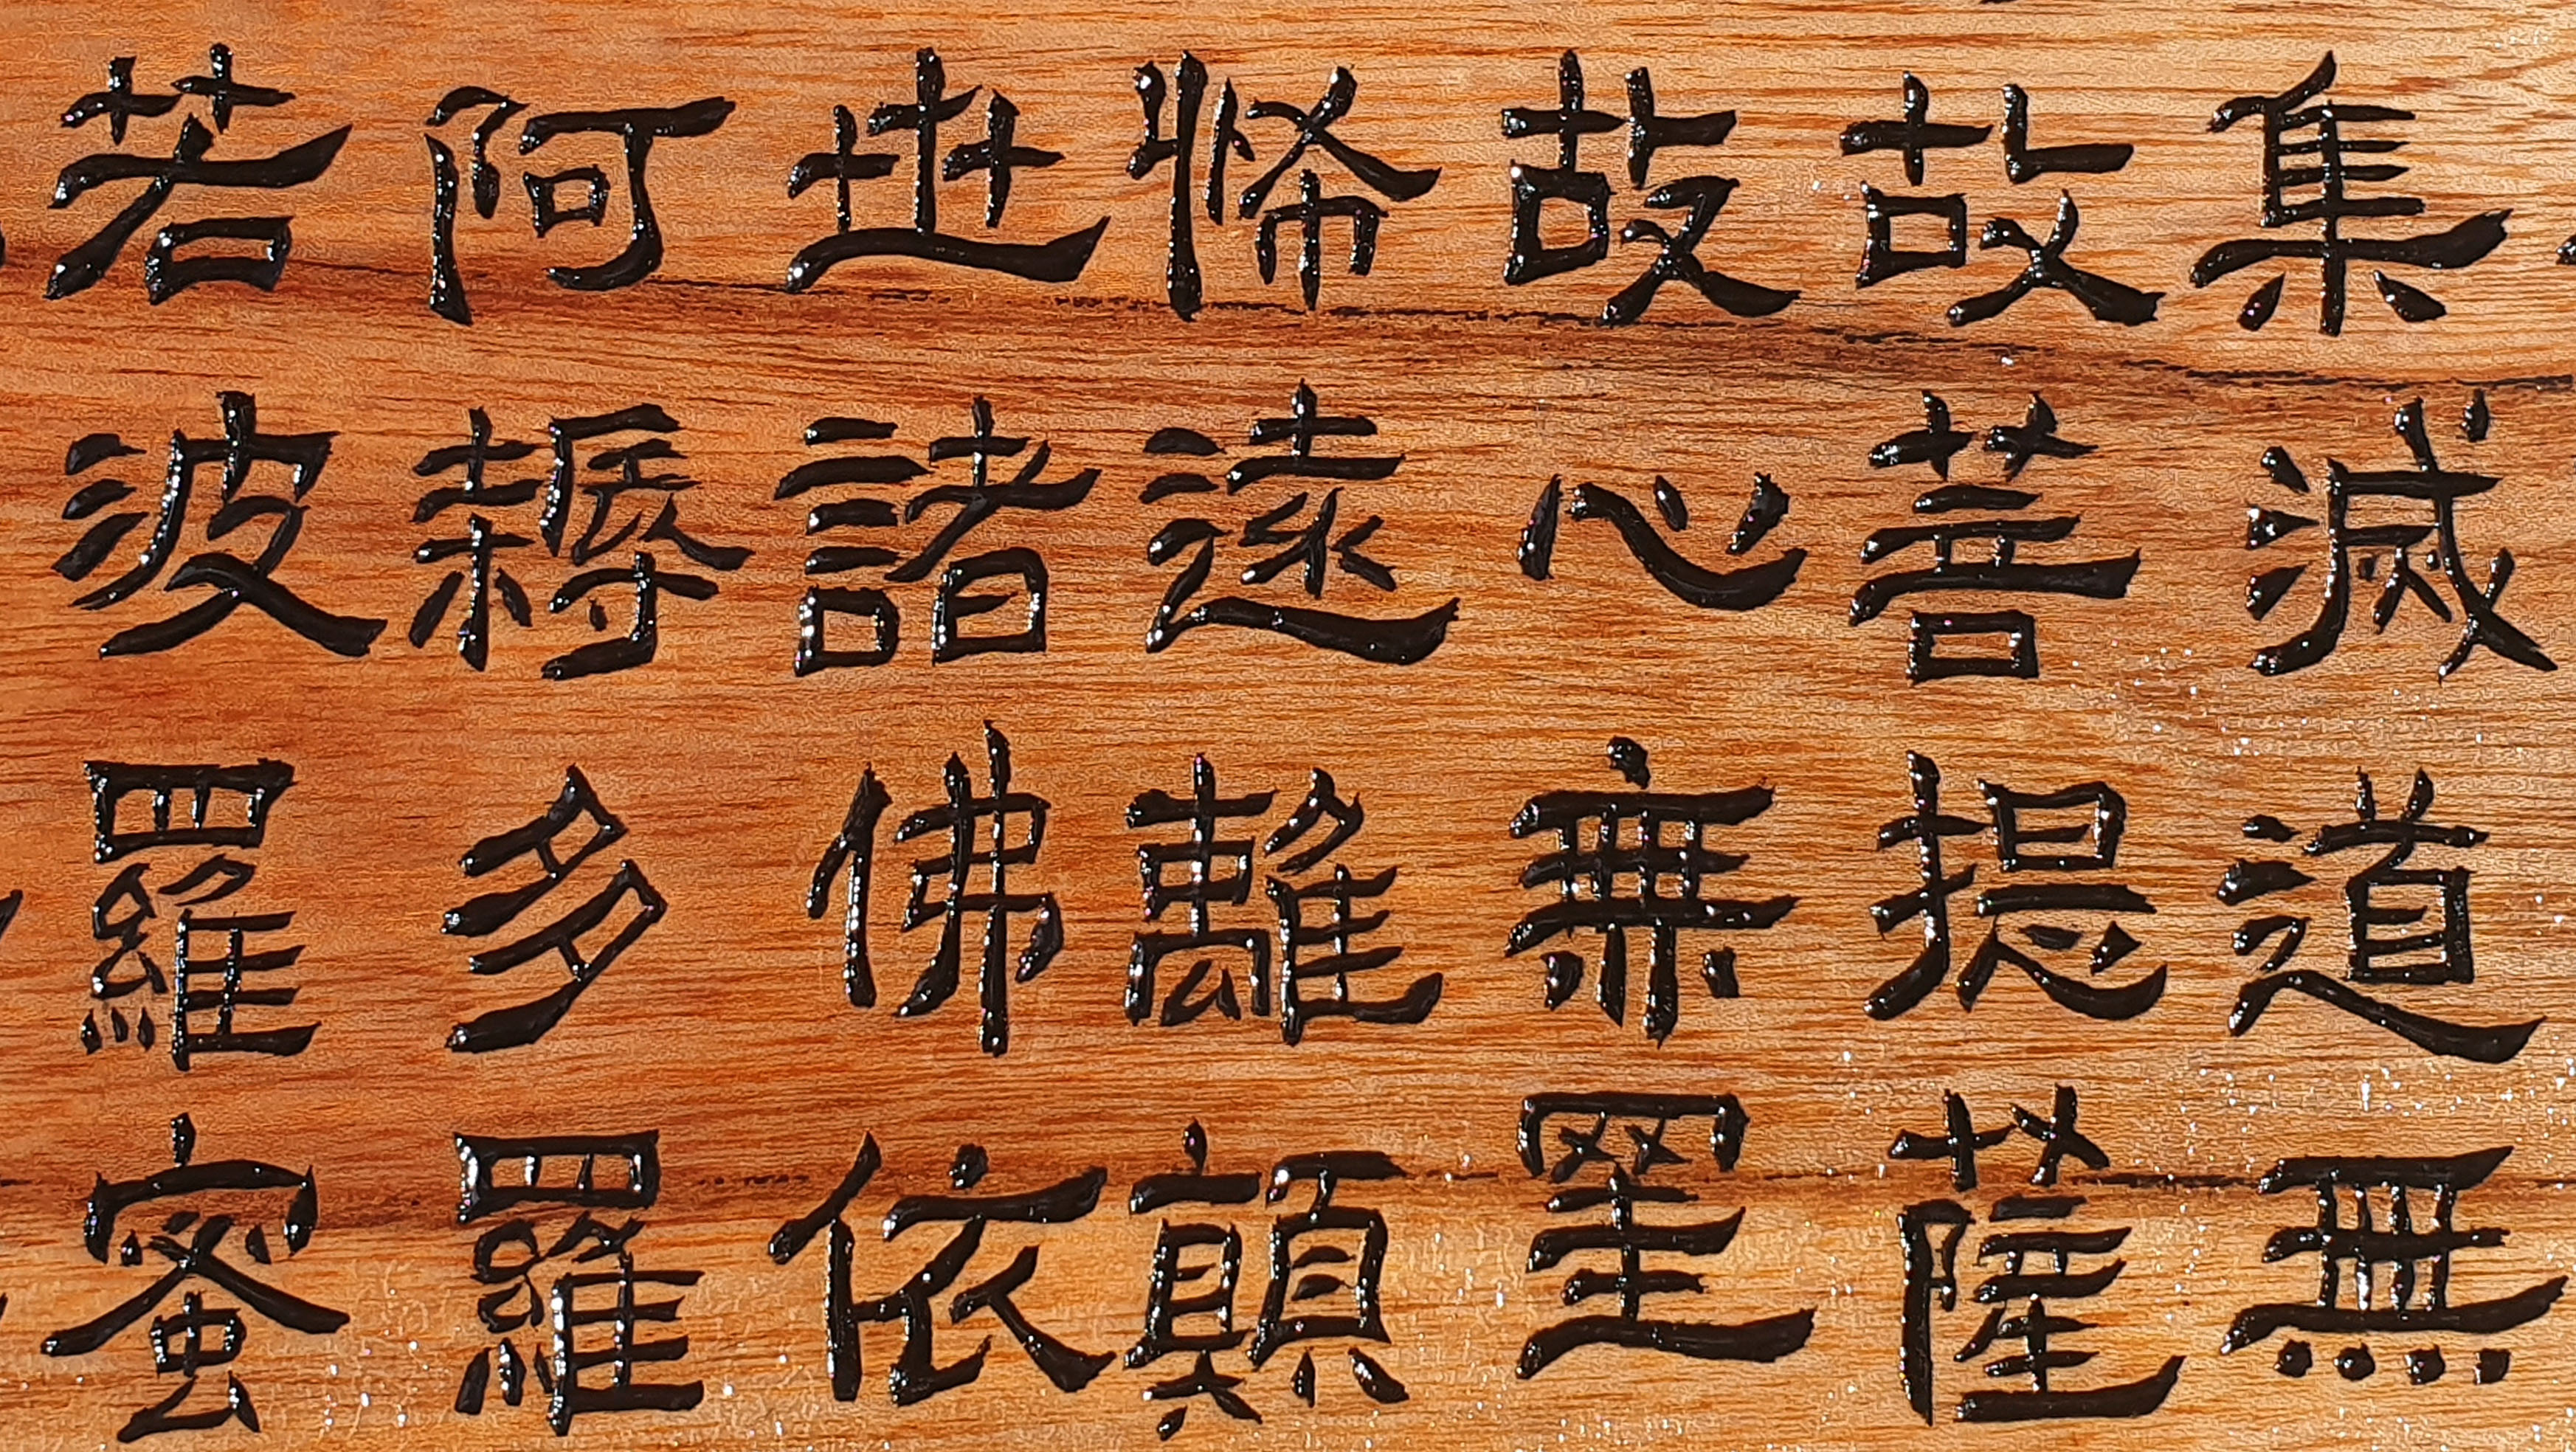 集滅道無
故菩提薩
故心無罣
怖遠離顛
世諸佛依
阿耨多羅
若波羅蜜